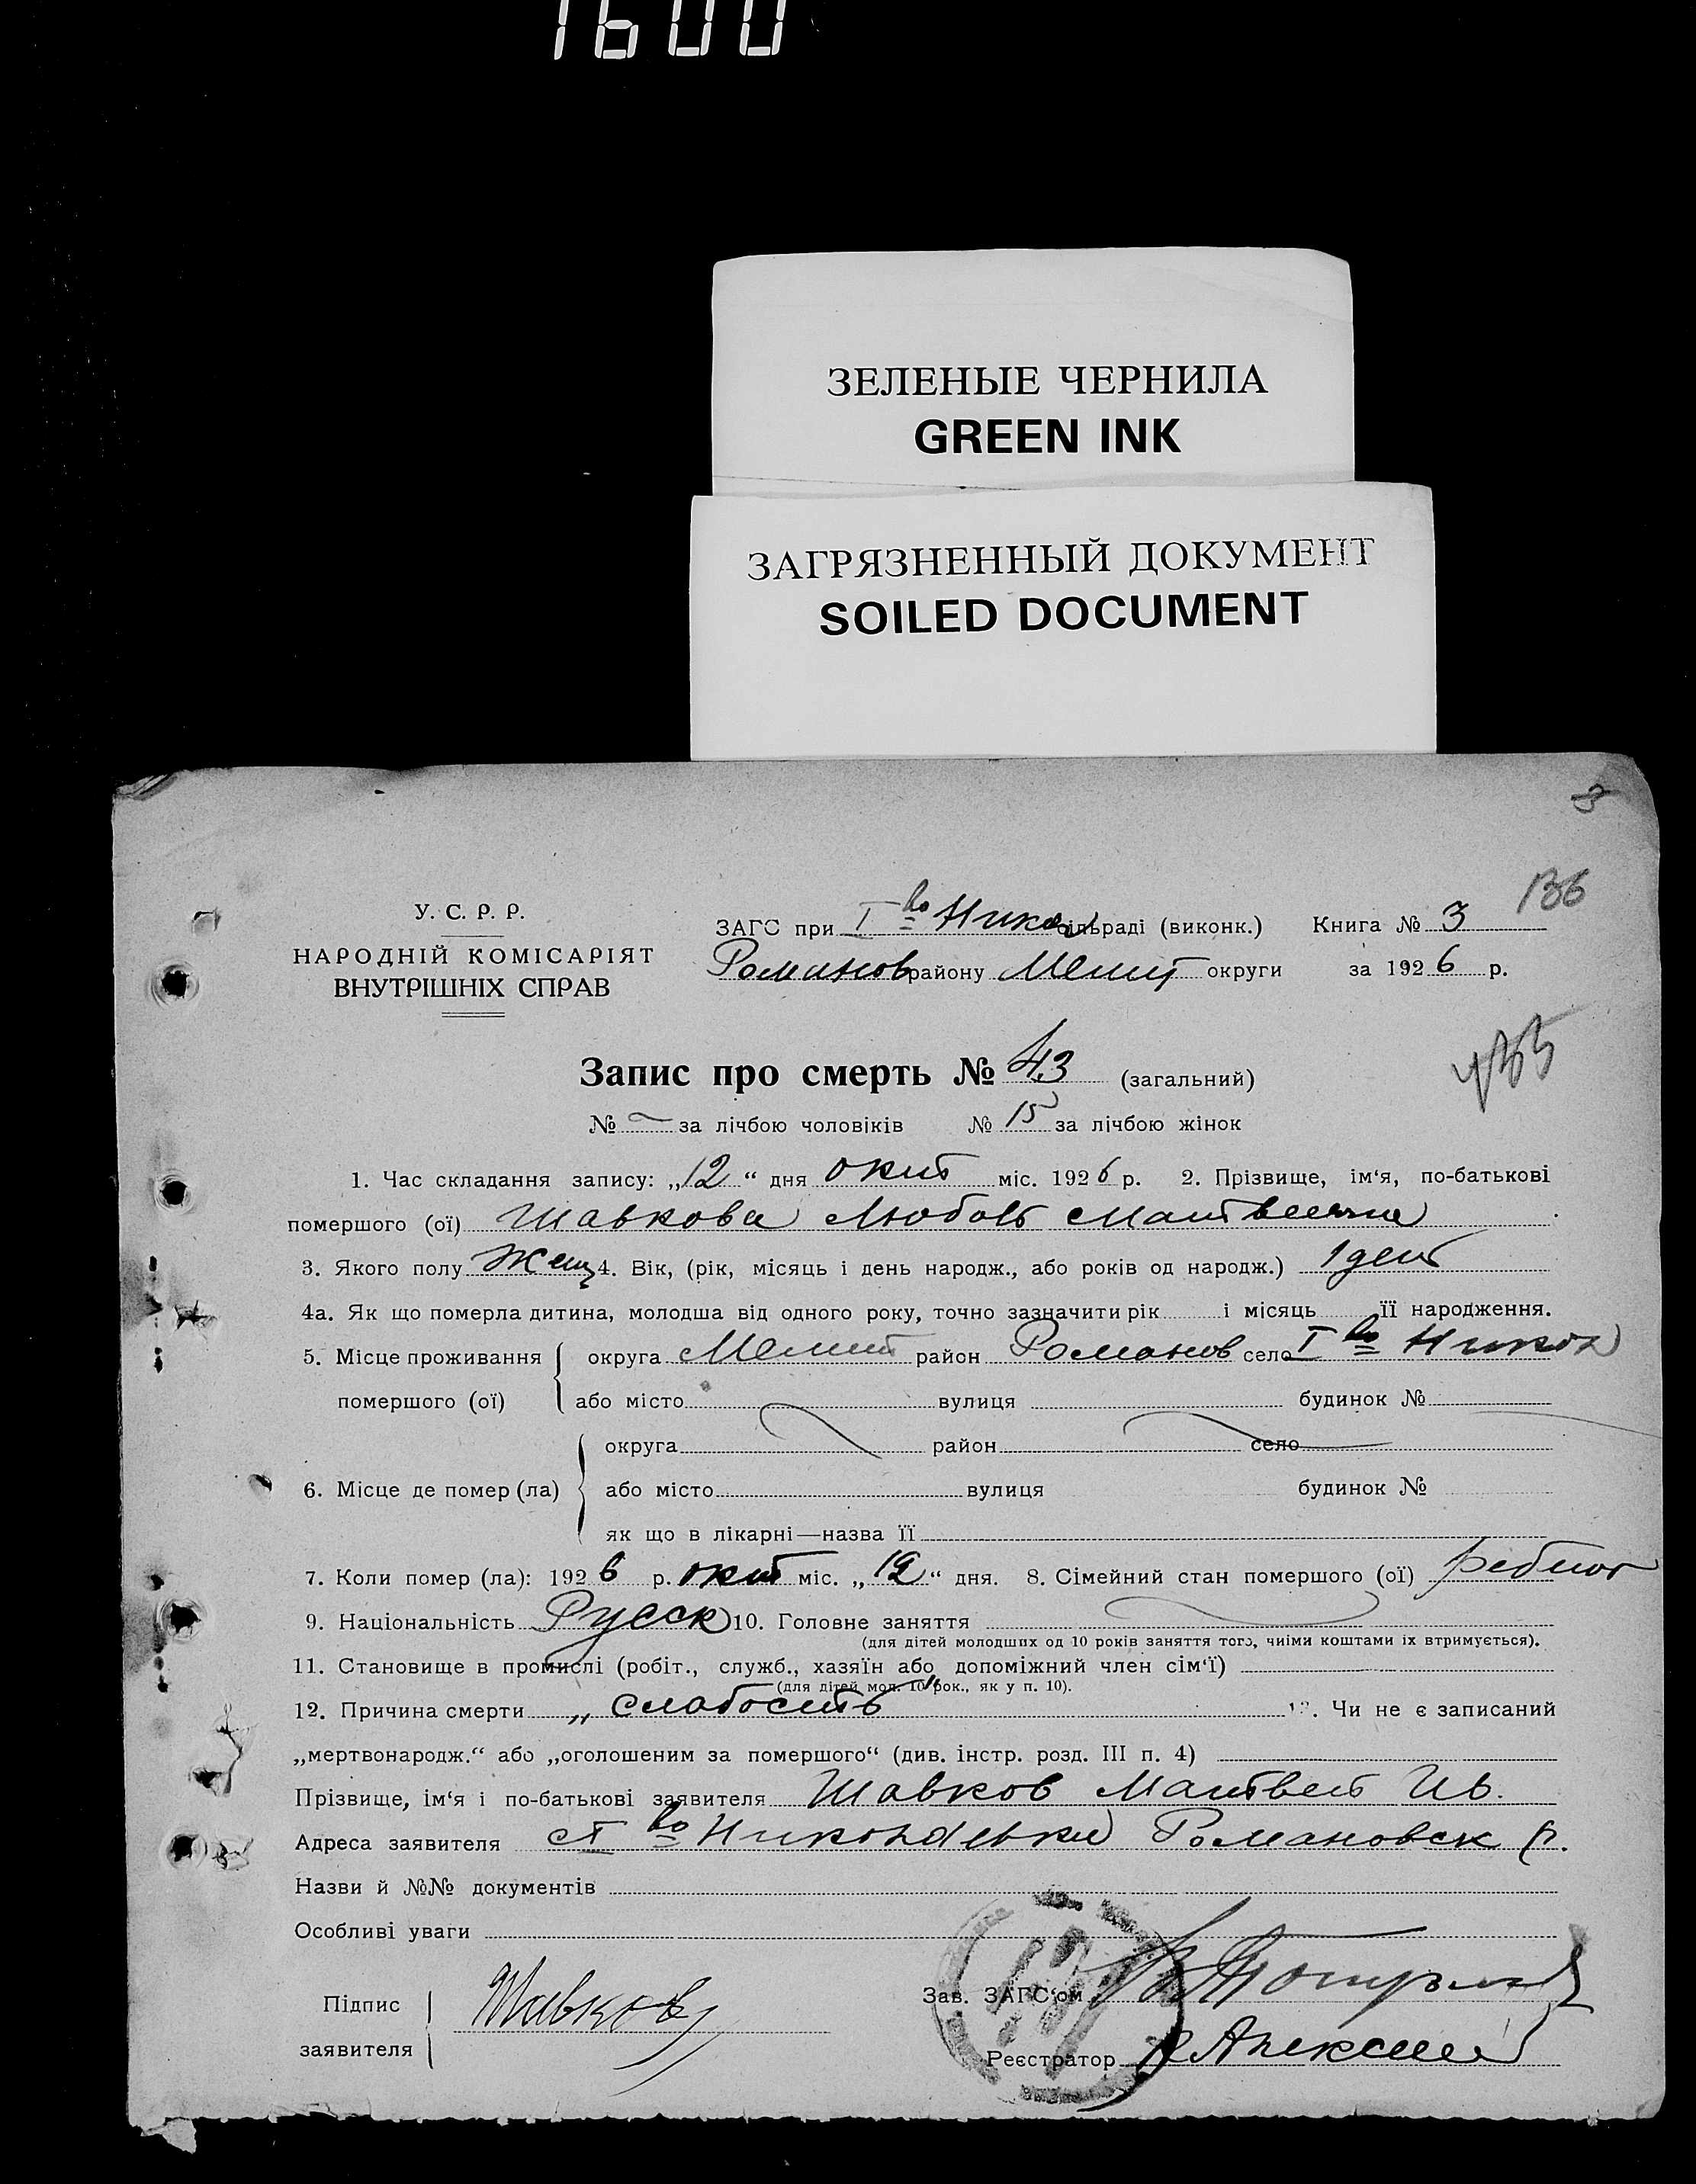 1600
ЗЕЛЕНЫЕ ЧЕРНИЛА
GREEN INK
ЗАГРЯЗНЕННЫЙ ДОКУМЕНТ
SOILED DOCUMENT
3
136
У. С. Р. Р.
НАРОДНІЙ КОМІСАРІЯТ
ВНУТРІШНІХ СПРАВ
ЗАГС при I во Никол сільраді (виконк.) Книга № 3
Романов району Мелит округи за 1926 р.
Запис про смерть № 43 (загальний)
№ — за лічбою чоловіків № 15 за лічбою жінок
1. Час складання запису: „12“ дня окт міс. 1926 р. 2. Прізвище, ім‘я, по-батькові
помершого (ої) Шавкова Любовь Матвеевна
3. Якого полу Женщ 4. Вік, (рік, місяць і день народж., або років од народж.) 1 ден
4а. Як що померла дитина, молодша від одного року, точно зазначити рік і місяць її народження.
5. Місце проживання помершого (ої) округа Мелит район Романов село I во Никол
або місто вулиця будинок №
6. Місце де помер (ла) округа район село
або місто вулиця будинок №
як що в лікарні—назва її
7. Коли помер (ла): 1926 р. окт міс. „12“ дня. 8. Сімейний стан помершого (ої)
9. Національність Русск 10. Головне заняття
(для дітей молодших од 10 років заняття того, чиїми коштами їх втримується).
11. Становище в промислі (робіт., служб., хазяїн або допоміжний член сім‘ї)
(для дітей мол. 10 рок., як у п. 10).
12. Причина смерти „слабость“ 13. Чи не є записаний
„мертвонародж.“ або „оголошеним за помершого“ (див. інстр. розд. III п. 4)
Прізвище, ім‘я і по-батькові заявителя Шавков Матвей Ив.
Адреса заявителя с I во Николаевка Романовск р.
Назви й №№ документів
Особливі уваги
Підпис заявителя Шавков
Зав. ЗАГС‘ом
Реєстратор